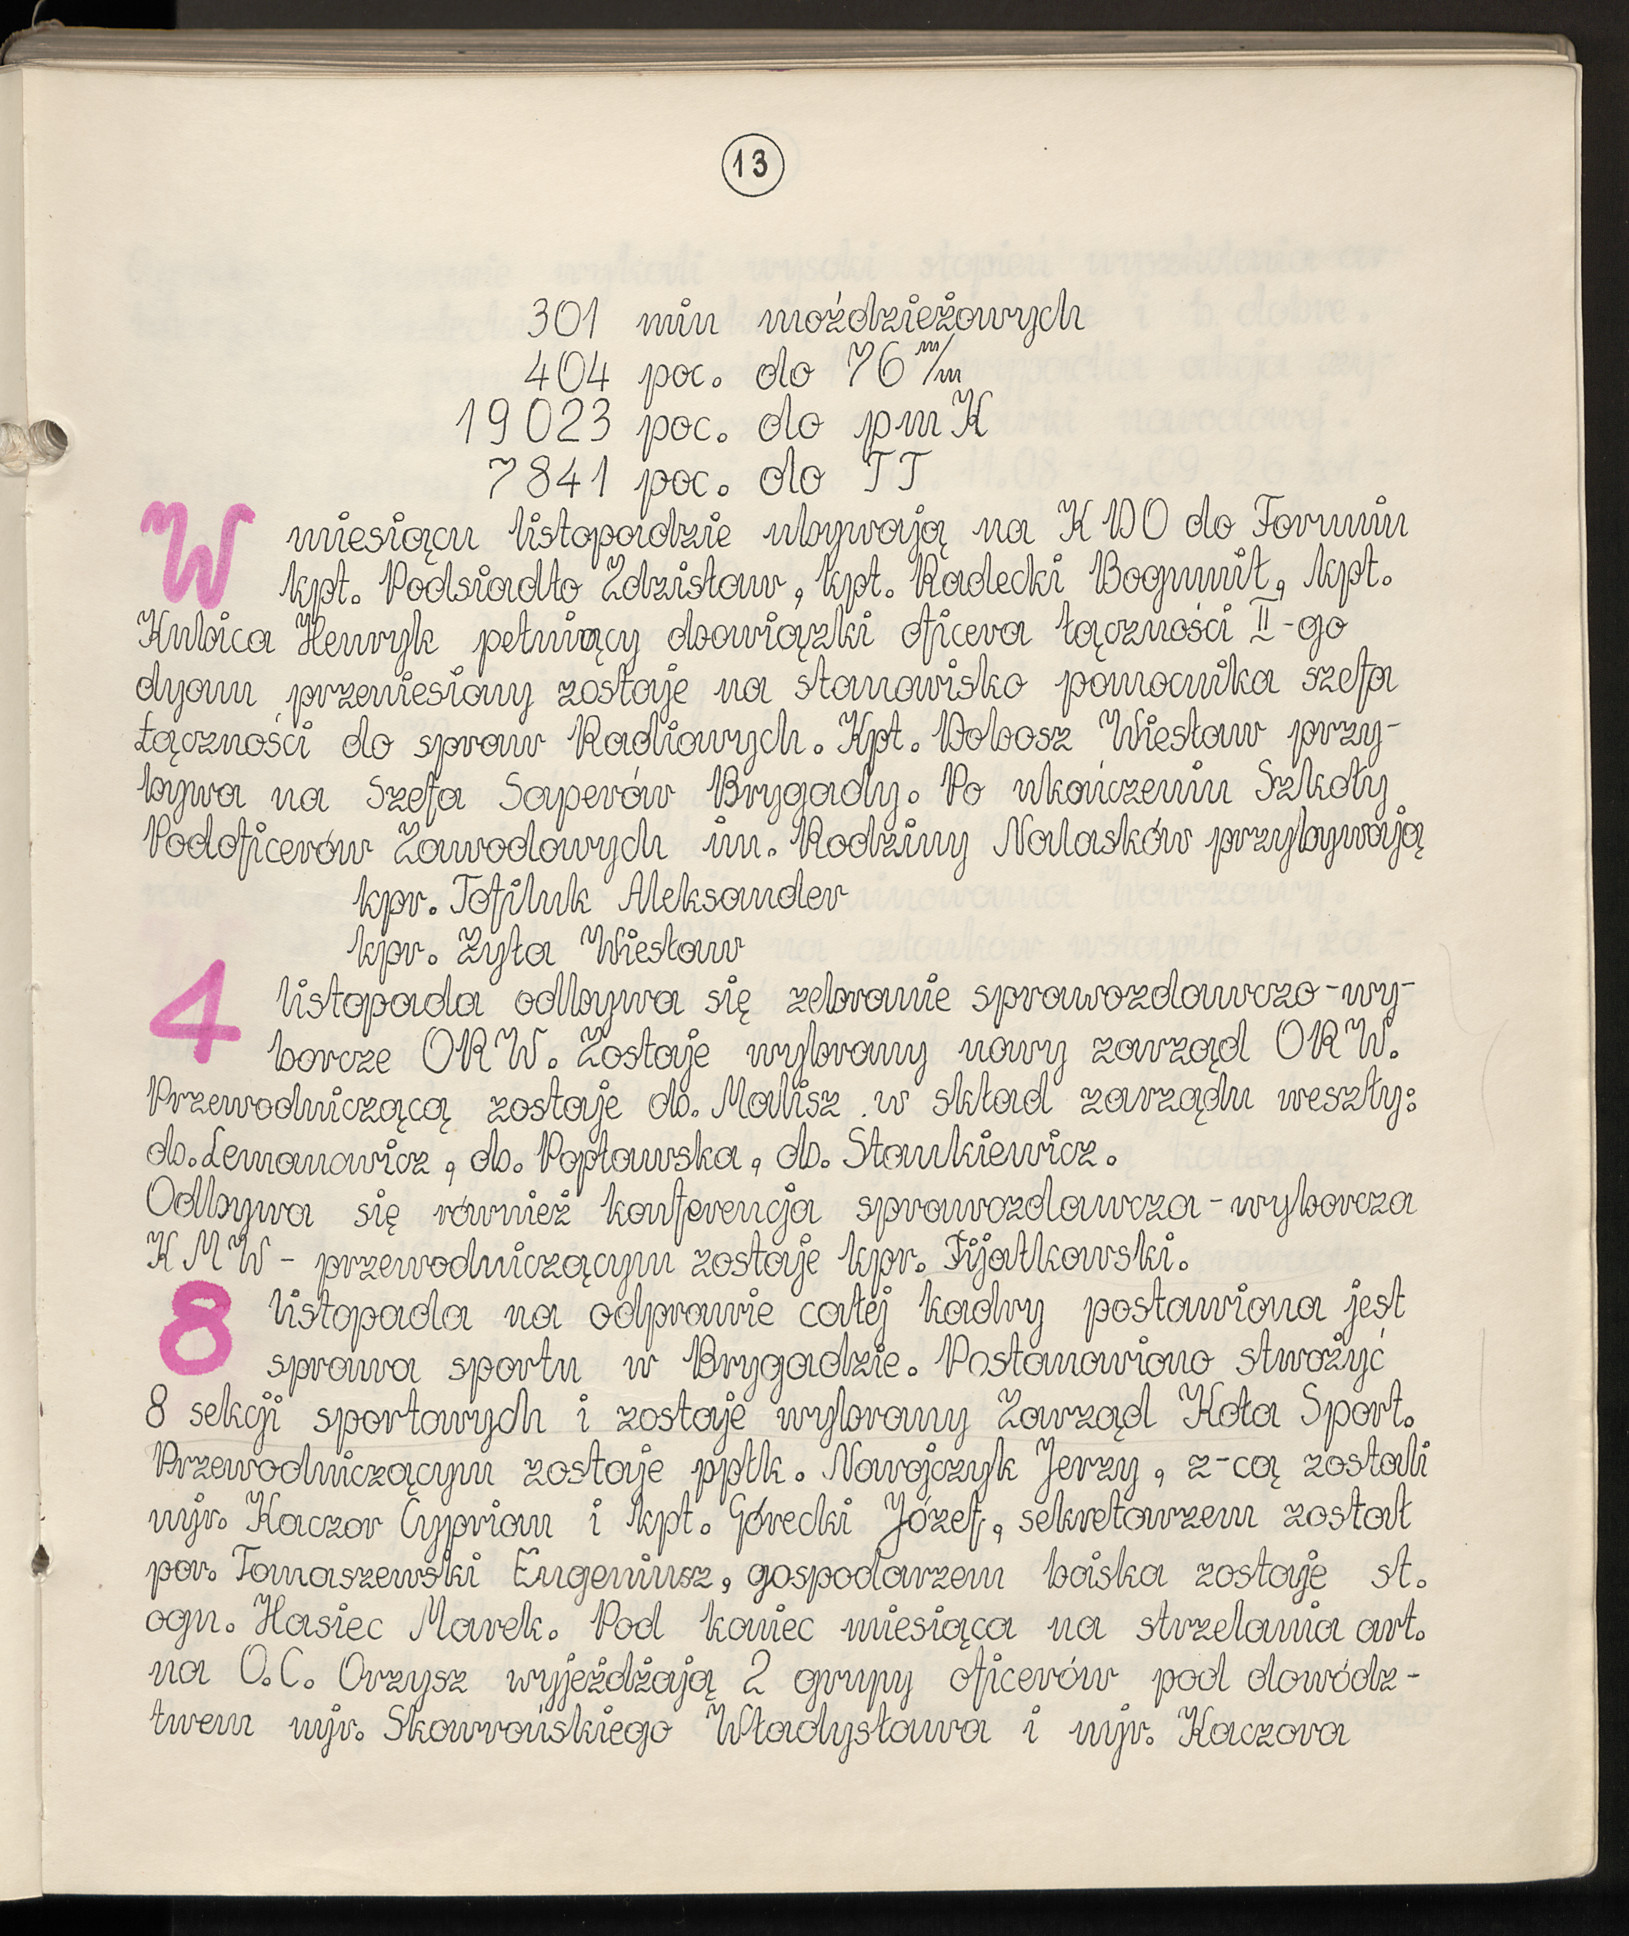 13
301 min moździeżowych
404 poc. do 76 m/m
19023 poc. do pmK
7841 poc. do TT
W miesiącu listopadzie ubywają na KDO do Torunia
kpt. Podsiadło Zdzisław, kpt. Radecki Bogumił, kpt.
Kubica Henryk pełniący obowiązki oficera łączności II-go
dyonu przeniesiony zostaje na stanowisko pomocnika szefa
Łączności do spraw Radiowych. Kpt. Dobosz Wiesław przy-
bywa na Szefa Saperów Brygady. Po ukończeniu Szkoły
Podoficerów Zawodowych im. Rodziny Nalasków przybywają
kpr. Tofiluk Aleksander
kpr. Zyła Wiesław
4 listopada odbywa się zebranie sprawozdawczo-wy-
borcze ORW. Zostaje wybrany nowy zarząd ORW.
Przewodniczącą zostaje ob. Malisz w skład zarządu weszły:
ob. Lemanowicz, ob. Popławska, ob. Stankiewicz.
Odbywa się również konferencja sprawozdawcza-wyborcza
KMW - przewodniczącym zostaje kpr. Fijałkowski.
8 listopada na odprawie całej kadry postawiona jest
sprawa sportu w Brygadzie. Postanowiono stwożyć
8 sekcji sportowych i zostaje wybrany Zarząd Koła Sport.
Przewodniczącym zostaje ppłk. Nawojczyk Jerzy, z-cą zostali
mjr. Kaczor Cyprian i kpt. Górecki Józef, sekretarzem został
por. Tomaszewski Eugeniusz, gospodarzem boiska zostaje st.
ogn. Hasiec Marek. Pod koniec miesiąca na strzelania art.
na O.C. Orzysz wyjeżdżają 2 grupy oficerów pod dowódz-
twem mjr. Skowrońskiego Władysława i mjr. Kaczora